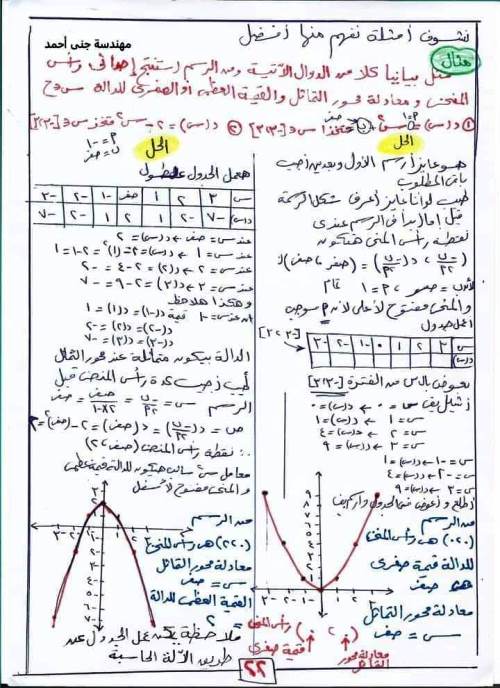 مهندسة جنى أحمد
نشوف أمثلة نفهم منها أفضل
مثال
مثل بيانيا كلا من الدوال الآتية ومن الرسم استنتج إحداثى رأس
المنحنى ومعادلة محور التماثل والقيمة العظمى أو الصغرى للدالة
① د(س) = س² متخذا س ∈ [-٣،٣]
② د(س) = ٢ - س² متخذ س ∈ [-٣،٣]
الحل
هو عايز أرسم الأول وبعدين أجيب
باقى المطلوب
طيب لو انا عايز أعرف شكل الرسمة
قبل ما ابدأ فى الرسم عندى
نقطة رأس المنحنى هتكون
لأن ب = صفر ، م = ١
والمنحنى مفتوح لأعلى لأنه م موجب
اعمل جدول
[-٣،٣]
س ٣ ٢ ١ ٠ -١ -٢ -٣
د(س)
نعوض بالـ س من الفترة [-٣،٣]
س = ٠ ← د(س) = ٠
س = ١ ← د(س) = ١
س = ٢ ← د(س) = ٤
س = ٣ ← د(س) = ٩
س = -١ ← د(س) = ١
س = -٢ ← د(س) = ٤
س = -٣ ← د(س) = ٩
من الرسم
(٠،٠) هى رأس المنحنى
للدالة قيمة صغرى
هى صفر
معادلة محور التماثل
س = صفر
رأس المنحنى
قيمة صغرى
معادلة محور التماثل
الحل
م = -١
ب = صفر
هعمل الجدول علطول
س ٣ ٢ ١ صفر -١ -٢ -٣
د(س) -٧ -٢ ١ ٢ ١ -٢ -٧
عند س = صفر ← د(س) = ٢
عند س = ١ ← د(س) = ٢ - (١)² = ٢ - ١ = ١
عند س = ٢ ← د(٢) = ٢ - ٤ = -٢
عند س = ٣ ← د(٣) = ٢ - ٩ = -٧
وهكذا هنلاحظ
ان عند س = -١ قيمة د(-١) = د(١) = ١
د(-٢) = د(٢) = -٢
د(-٣) = د(٣) = -٧
الدالة بيكون متماثلة عند محور التماثل
طيب نجيب نقطة رأس المنحنى قبل
الرسم
∴ نقطة رأس المنحنى (صفر، ٢)
معامل س² سالب هتكون للدالة قيمة عظمى
والمنحنى مفتوح لأسفل
من الرسم
(٢،٠) هى رأس المنحنى
معادلة محور التماثل
س = صفر
القيمة العظمى للدالة
= ٢
ملاحظة يمكنك عمل الجدول عن
طريق الآلة الحاسبة
٢٢